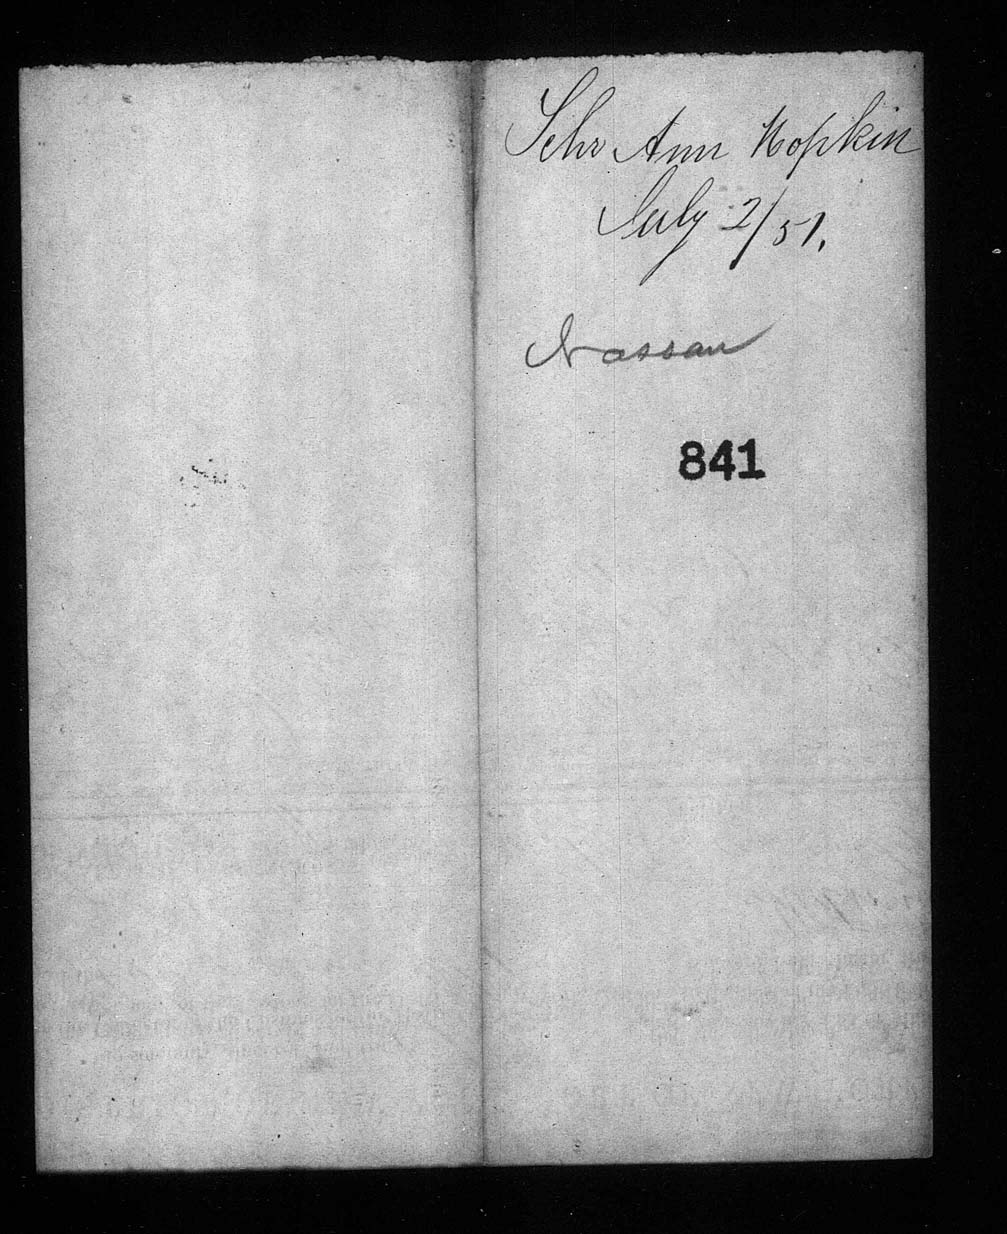 Schr Ann Hopkin
July 2/51.
Nassau
841